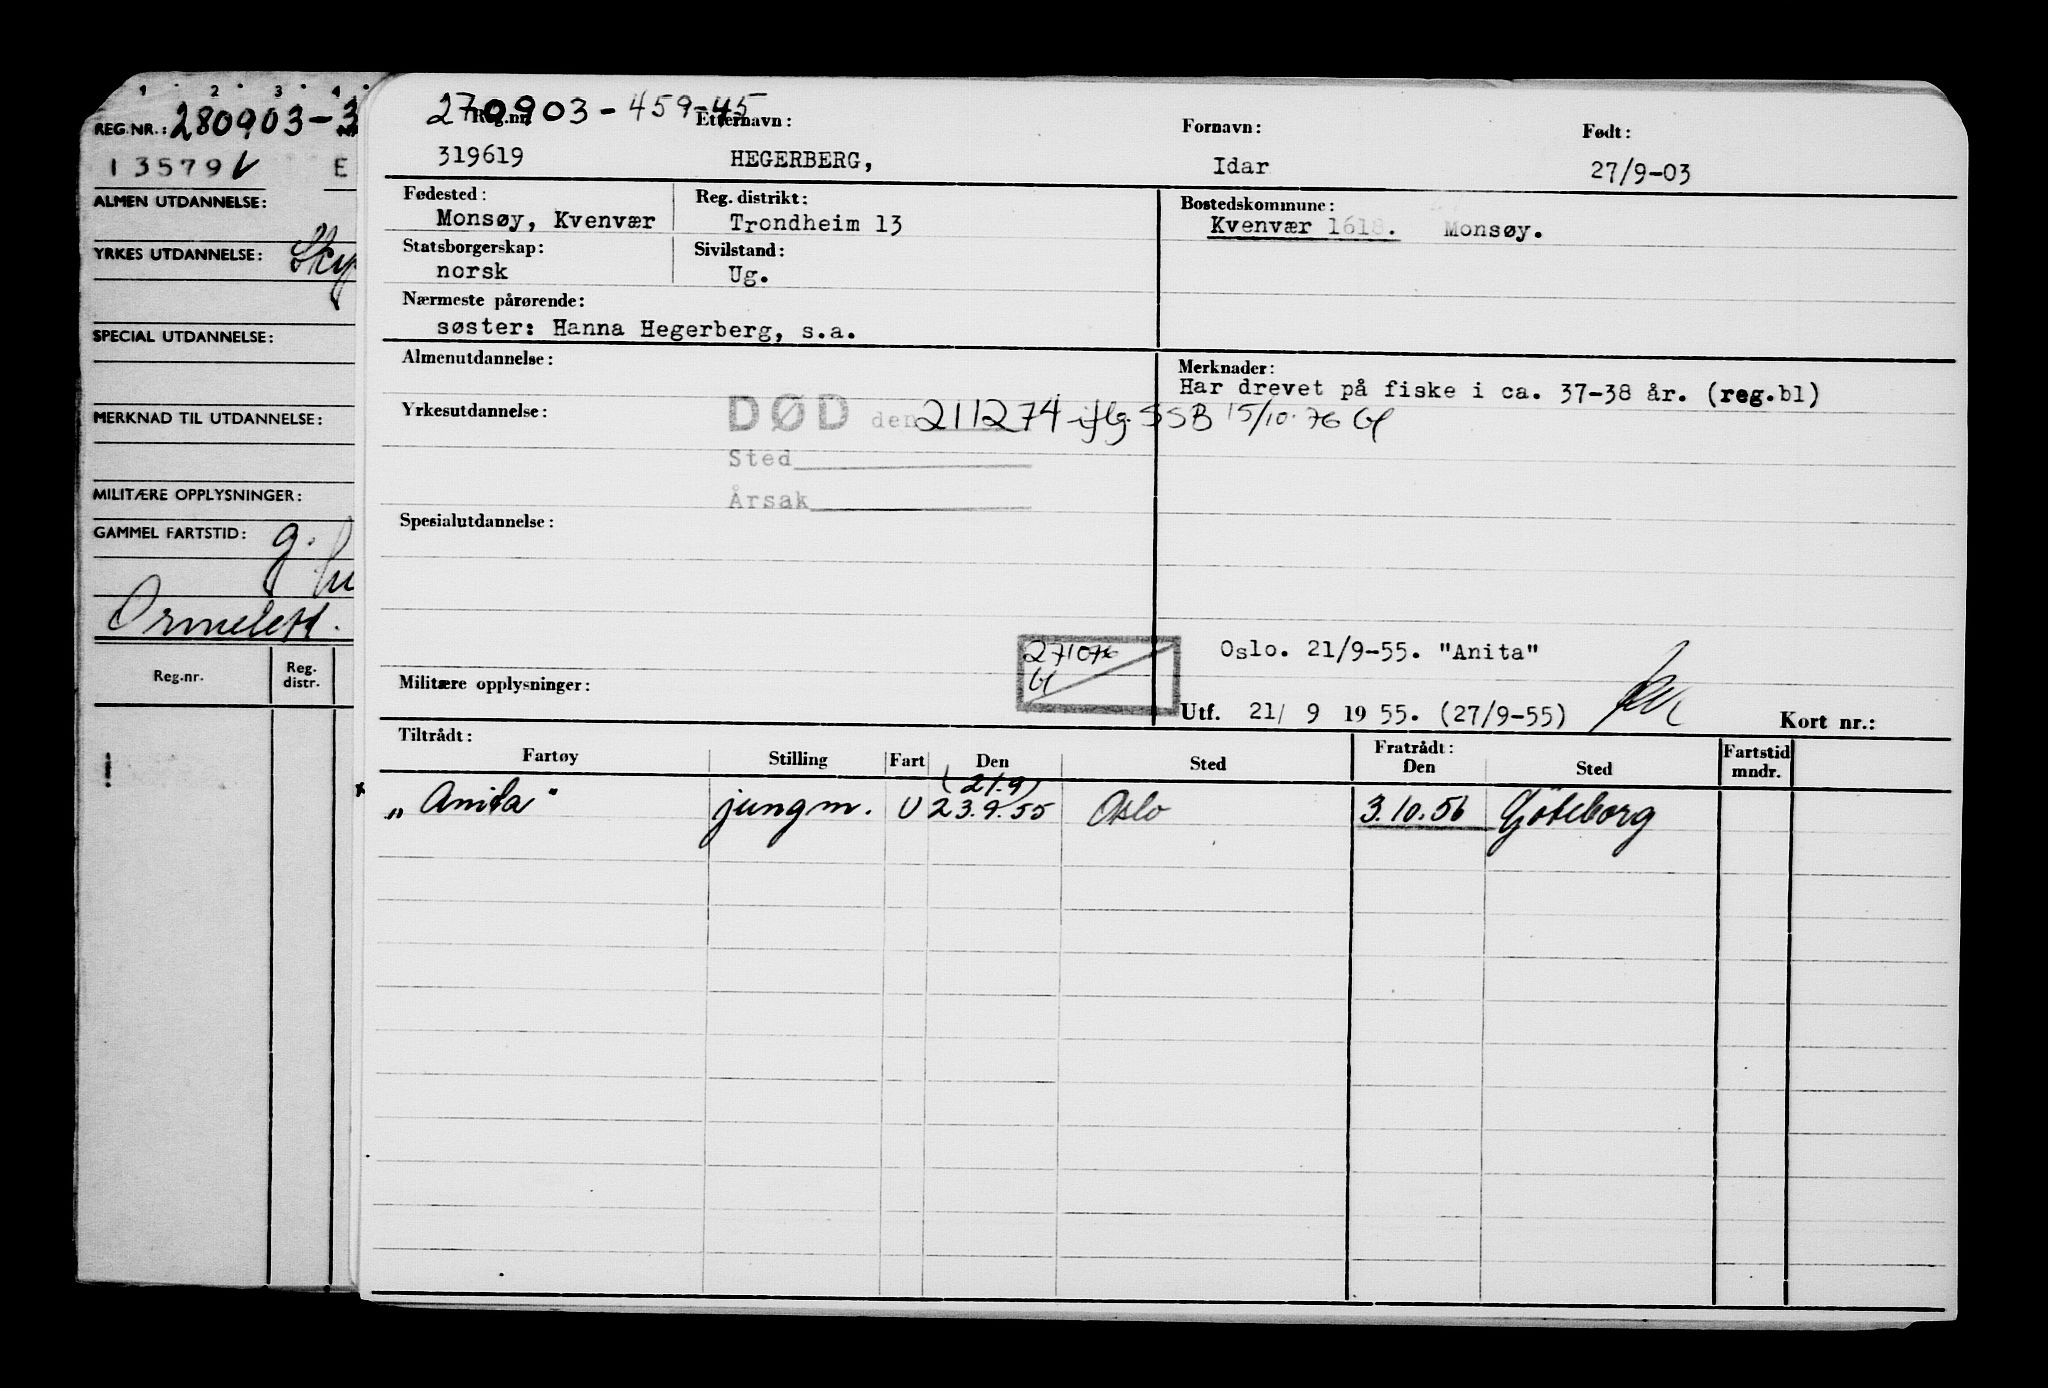 1 2 3 4
REG.NR.: 280903-3
13579 E
ALMEN UTDANNELSE:
YRKES UTDANNELSE:
SPECIAL UTDANNELSE:
MERKNAD TIL UTDANNELSE:
MILITÆRE OPPLYSNINGER:
GAMMEL FARTSTID: g.
Reg.nr. Reg. distr.
270903-459-45
Reg.nr. Etternavn: Fornavn: Født:
319619 HEGERBERG, Idar 27/9-03
Fødested: Reg. distrikt: Bostedskommune:
Monsøy, Kvenvær Trondheim 13 Kvenvær 1618. Monsøy.
Statsborgerskap: Sivilstand:
norsk Ug.
Nærmeste pårørende:
søster: Hanna Hegerberg, s.a.
Almenutdannelse: Merknader:
Har drevet på fiske i ca. 37-38 år. (reg.bl)
Yrkesutdannelse: DØD den 211274 iflg. SSB 15/10.76
Sted
Årsak
Spesialutdannelse:
271076
Oslo. 21/9-55. "Anita"
Militære opplysninger:
Utf. 21/ 9 19 55. (27/9-55) Kort nr.:
Tiltrådt: Fratrådt:
Fartøy Stilling Fart Den Sted Den Sted Fartstid mndr.
(21.9)
„Anita" jungm. U 23.9.55 Oslo 3.10.56 Göteborg